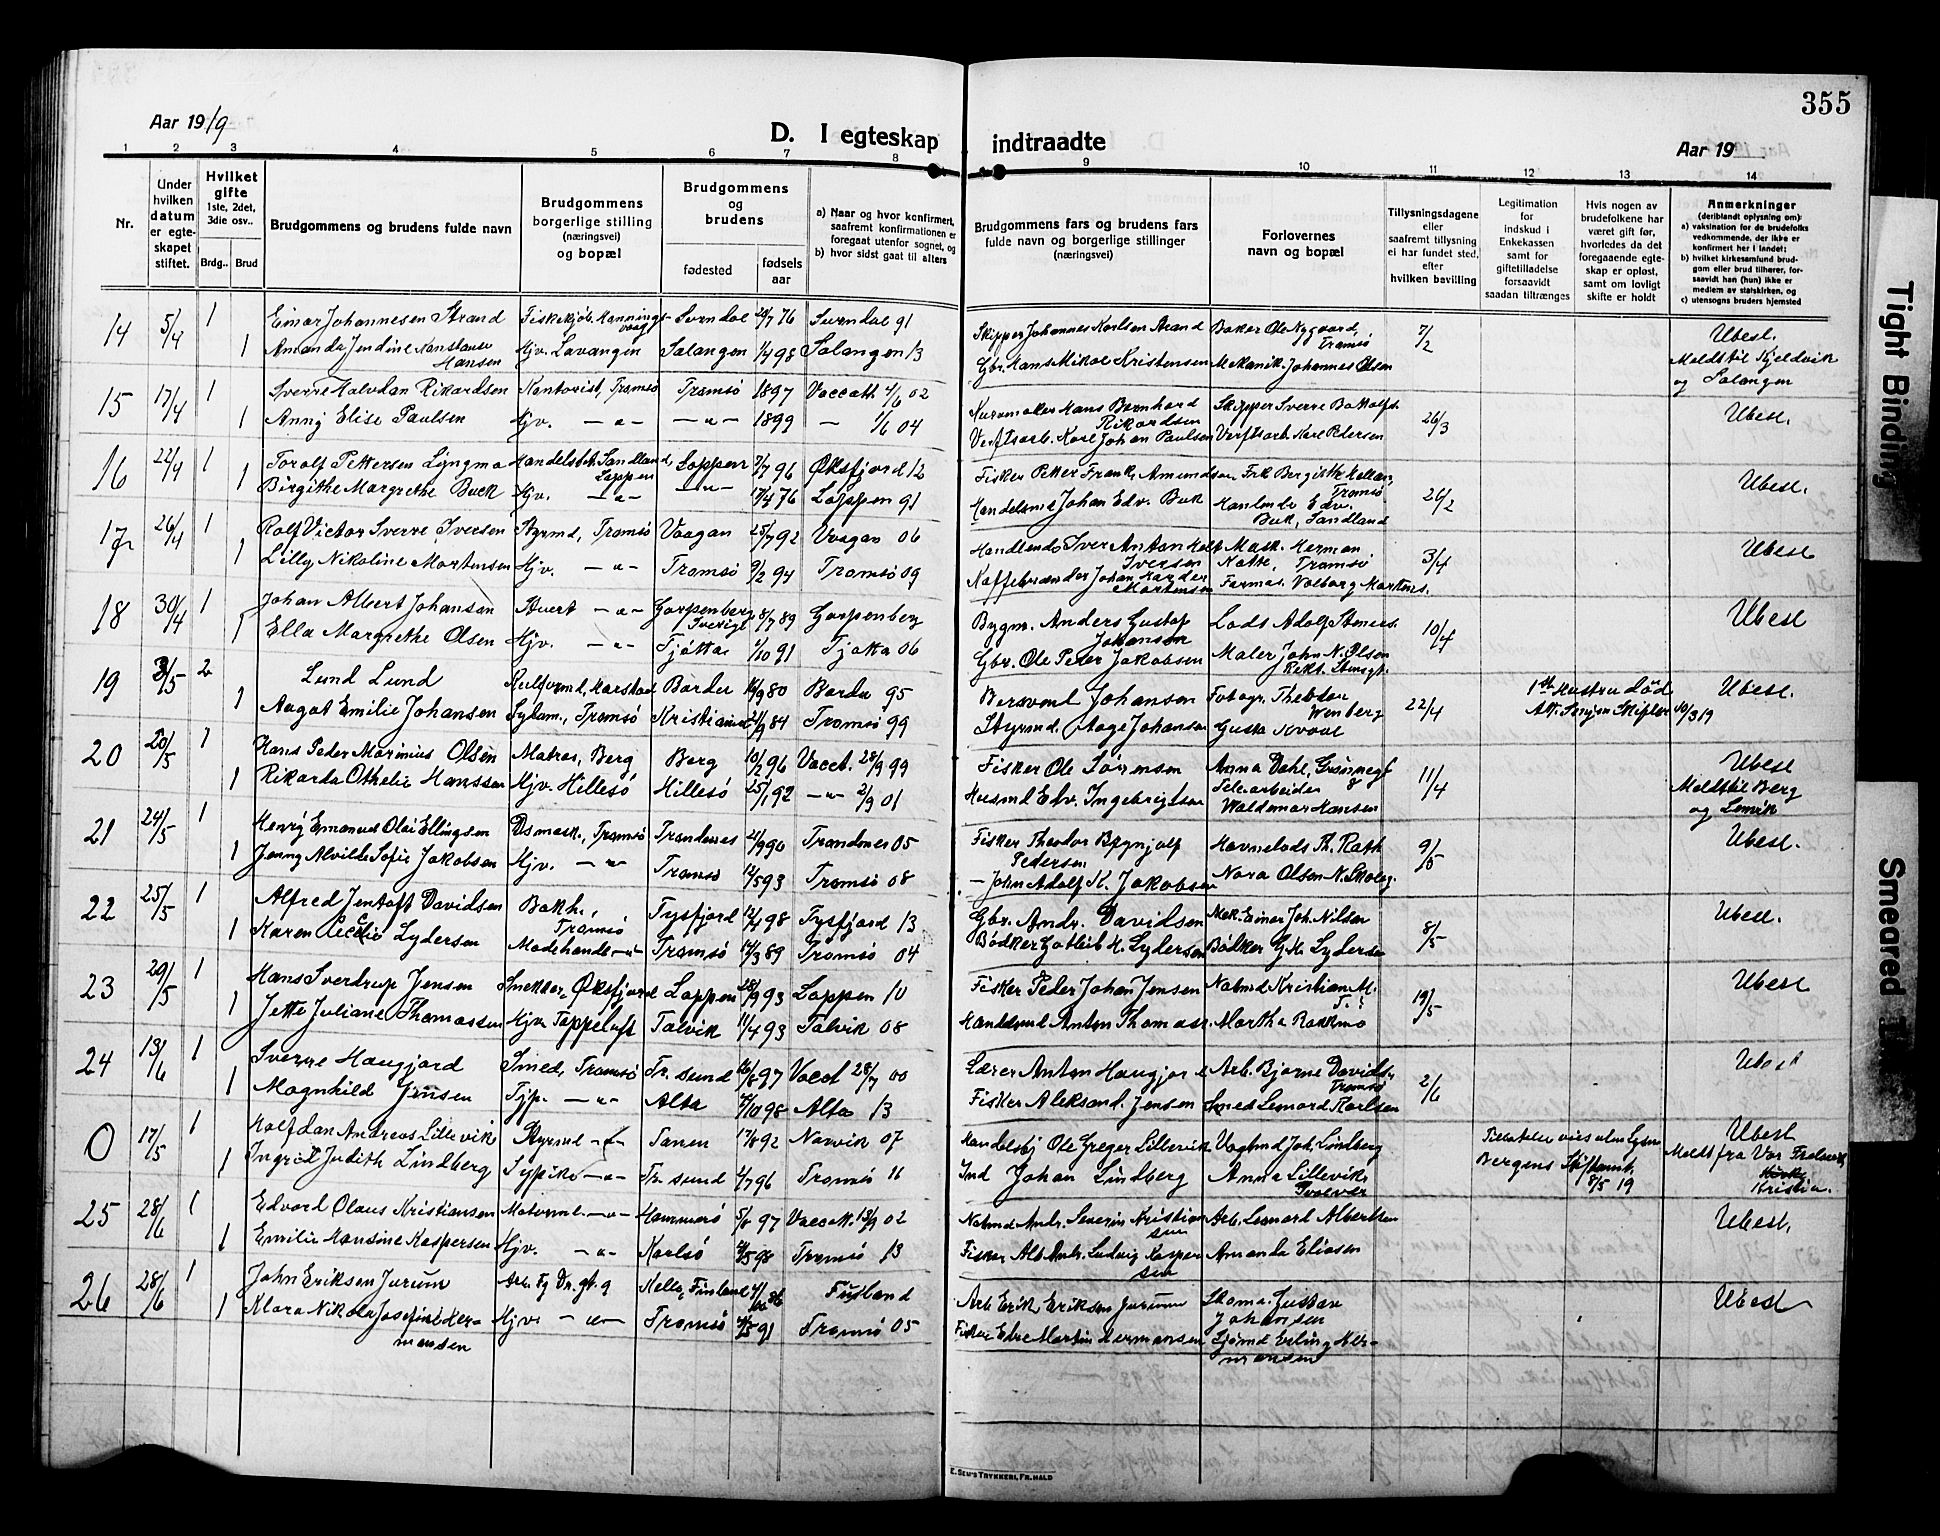 355
Aar 1919
D. I egteskap indtraadte
Aar 19
1 2 3 4 5 6 7 8 9 10 11 12 13 14
Nr.
Under hvilken datum er egteskapet stiftet.
Hvilket gifte 1ste, 2det, 3die osv..
Brdg.. Brud
Brudgommens og brudens fulde navn
Brudgommens borgerlige stilling (næringsvei) og bopæl
Brudgommens og brudens
fødested
fødselsaar
a) Naar og hvor konfirmert, saafremt konfirmationen er foregaat utenfor sognet, og
b) hvor sidst gaat til alters
Brudgommens fars og brudens fars fulde navn og borgerlige stillinger (næringsvei)
Forlovernes navn og bopæl
Tillysningsdagene eller saafremt tillysning ei har fundet sted, efter hvilken bevilling
Legitimation for indskud i Enkekassen samt for giftetilladelse forsaavidt saadan tiltrænges
Hvis nogen av brudefolkene har været gift før, hvorledes da det foregaaende egteskap er opløst, samt om lovligt skifte er holdt
Anmerkninger (deriblandt oplysning om):
a) vaksination for de brudefolks vedkommende, der ikke er konfirmert her i landet;
b) hvilket kirkesamfund brudgom eller brud tilhører, forsaavidt han (hun) ikke er medlem av statskirken, og
c) utensogns bruders hjemsted
14 5/4 1 Einar Johannesen Strand Surndal 76 Surndal 91 Skipper Johannes Karlsen Strand Baker Ole Nygaard, Tromsö 7/2 Ubesl.
1 Amanda Jendine Konstanse Hansen Hjv. Lavangen Salangen 1/4 98 Salangen 13 Gbr. Hans Mikal Kristensen Mekanik. Johannes Olsen Meldt til Kjeldvik og Salangen
15 17/4 1 Sverre Halvdan Rikardsen Kontorist, Tromsö Tromsö 1897 Vaccatt 4/6 02 Kurvmaker Hans Bernhard Rikardsen Skipper Sverre Bottolfs. 26/3 Ubesl.
1 Anny Elise Paulsen Hjv. — „ — — „ — 1899 — 1/6 04 Verftsarb. Karl Johan Paulsen Verftsarb. Karl Pedersen
16 22/4 1 Torolf Pettersen Lyngmo Handelsbet. Sandland, Loppen Loppen 7/7 96 Øksfjord 12 Fisker Petter Frank Amundsen Frk. Bergitte Tromsö 26/2 Ubesl.
1 Birgithe Margrethe Buck Hjv. — „ — — „ — 17/4 76 Loppen 91 Handelsmd Johan Edv. Buck Handlende Edv. Buck, Sandland
17 26/4 1 Rolf Victor Sverre Iversen Styrmd, Tromsö Vaagan 25/7 92 Vaagan 06 Handlende Iver Anton Holt Iversen Mask. Herman Tromsö 3/4 Ubesl
1 Lilly Nikoline Mortensen Hjv. — „ — Tromsö 9/2 94 Tromsö 09 Kaffebrænder Johan Mortensen Farmac. Valborg Mortens.
18 30/4 1 Johan Albert Johansen Stuert — „ — Garpenberg Sverige 8/7 89 Garpenberg Bygm. Anders Gustaf Johanson Lods Adolf 10/4 Ubesl
1 Ella Margrethe Olsen Hjv. — „ — Tjötta 1/10 91 Tjøtta 06 Gbr. Ole Peder Jakobsen Maler John N. Olsen
19 3/5 2 Lund Lund Harstad Bardu 80 Bardu 95 Bersvend Johansen Fotogr. Thebsen Wenberg 22/4 1ste Hustru död Ubesl.
1 Aagot Emilie Johansen Sydam., Tromsö Kristiania 21/9 84 Tromsö 99 Styrmd. Aage Johansen Gusta Kvaal Att. Senjen Skifter 10/3 19
20 20/5 1 Hans Peder Marinius Olsen Matros, Berg Berg 10/2 96 Vacct. 28/9 99 Fisker Ole Sörensen Anna Dahl, Grønnegt 11/4 Ubesl
1 Rikarda Othelie Hanssen Hjv. Hillesö Hillesö 25/1 92 — „ — 2/9 01 Husmd Edv. Ingebrigtsen Telearbeider Waldemar Hansen Meldt til Berg og Lenvik
21 24/5 1 Henry Emanuel Olai Ellingsen Dsmask., Tromsö Trondenes 21/9 90 Trondenes 05 Fisker Theodor Brynjolf Pedersen Havnelods Th. Rath 9/5 Ubesl.
1 Jenny Alvilde Sofie Jakobsen Hjv. — „ — Tromsö 12/5 93 Tromsö 08 — John Adolf K. Jakobsen Nora Olsen N. Skoleg.
22 25/5 1 Alfred Jentoft Davidsen Bokh., Tromsö Tysfjord 12/4 98 Tysfjord 13 Gbr. Andr. Davidsen Mek. Einar Joh. Nilsen 8/5 Ubesl.
1 Karen Cecilie Lydersen Modehandl. — „ — Tromsö 14/3 89 Tromsö 04 Bödker Gotleib H. Lydersen Bödker G. H. Lydersen
23 29/5 1 Hans Sverdrup Jensen Snekker, Øksfjord Loppen 28/9 93 Loppen 10 Fisker Peder Johan Jensen Natmd Kristian M. 19/5 Ubesl
1 Jette Juliane Thomassen Hjv. Toppeluft Talvik 11/4 93 Talvik 08 Handelsmd Anton Thomasn. Martha Rokkmo
24 13/6 1 Sverre Haugjord Smed, Tromsö Tr. sund 16/8 97 Vacct 28/7 00 Lærer Anton Haugjord Arb. Bjarne Davids. Tromsö 2/6 Ubesl
1 Magnhild Jensen Tjp. — „ — Alta 10 98 Alta 13 Fisker Aleksand. Jensen Smed Lenard Karlsen
0 17/5 1 Halfdan Andreas Lillevik Styrmd — „ — Tanen 17/8 92 Narvik 07 Handelsbj Ole Greger Lillevik Vagtmd Joh. Lindberg Ubesl
1 Ingrid Judith Lindberg Sypike — „ — Tr. sund 4/7 96 Tromsö 11 Ind Johan Lindberg Anna Lillevik, Bergens Stiftamt. 8/5 19 Meldt fra Vor Frelsers Kristia.
25 28/6 1 Edvard Olaus Kristiansen — „ — Hammerö 5/8 97 Vaccatt. 13/9 02 Natmd Andr. Severin Kristiansen Arb. Leonard Albertsen Ubesl.
1 Emilie Hansine Kaspersen Hjv. — „ — Karlsö 98 Tromsö 13 Fisker Alb. Andr. Ludvig Kaspersen Amanda Eliasen
26 28/6 1 John Eriksen Jurum Kello, Finland 86 Finland Arb. Erik Eriksen Juruu Gustav Johansen Ubesl
1 Klara Nikola Josefine Hermansen Hjv. — „ — Tromsö 91 Tromsö 05 Fisker Edv. Martin Hermansen Sjömd Erling Hermansen
E. SEM'S TRYKKERI, FR. HALD
Tight Binding
Smeared